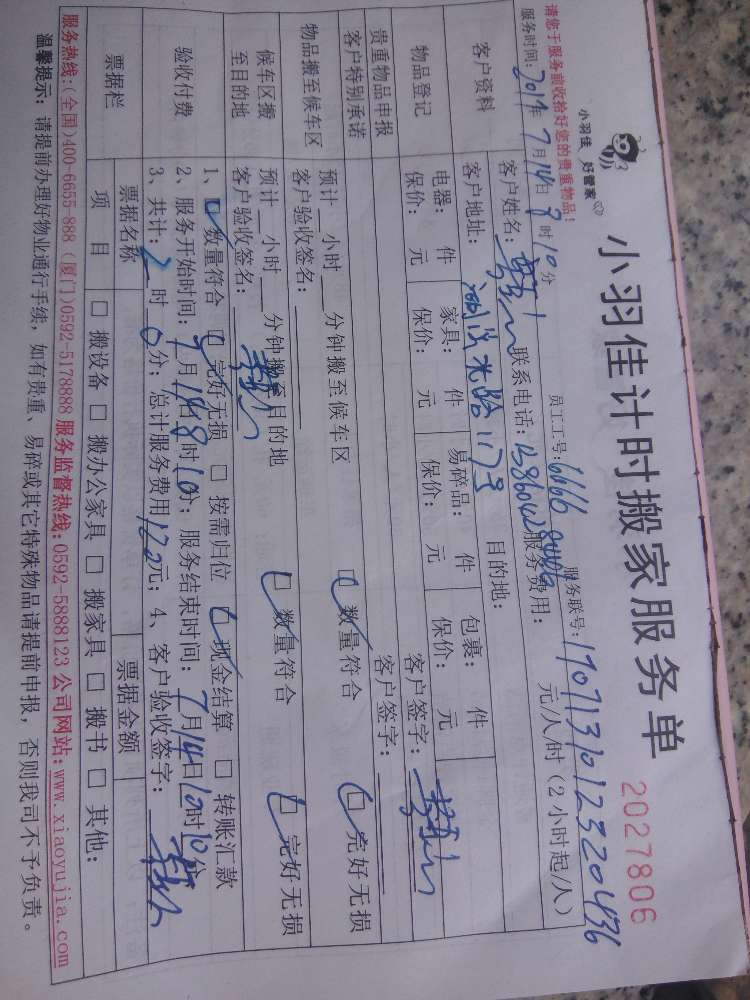 小羽佳 好管家
小羽佳计时搬家服务单
2027806
请您于服务前收拾好您的贵重物品!
员工工号:6666 服务联号:19071310123320436
服务时间:2019年7月14日8时10分
客户资料
客户姓名: 联系电话: 服务费用: 元/人/时(2小时起/人)
客户地址: 湖滨 路117号 目的地:
物品登记
电器: 件 家具: 件 易碎品: 件 包裹: 件
保价: 元 保价: 元 保价: 元 保价: 元
贵重物品申报
客户签字:
客户特别承诺
客户签字:
物品搬至候车区
预计 小时 分钟搬至候车区 数量符合 完好无损
客户验收签名:
候车区搬至目的地
预计 小时 分钟搬至目的地 数量符合 完好无损
客户验收签名:
验收付费
1、 数量符合 完好无损 □ 按需归位 现金结算 □ 转账汇款
2、服务开始时间:7月14日8时10分; 服务结束时间:7月14日10时10分
3、共计:2时0分; 总计服务费用 元; 4、客户验收签字:
票据栏
票据名称 票据金额
项目 □ 搬设备 □ 搬办公家具 □ 搬家具 □ 搬书 □ 其他:
服务热线:(全国)400-6655-888 (厦门)0592-5178888 服务监督热线:0592-5888123 公司网站:www.xiaoyujia.com
温馨提示:请提前办理好物业通行手续,如有贵重、易碎或其它特殊物品请提前申报,否则我司不予负责。